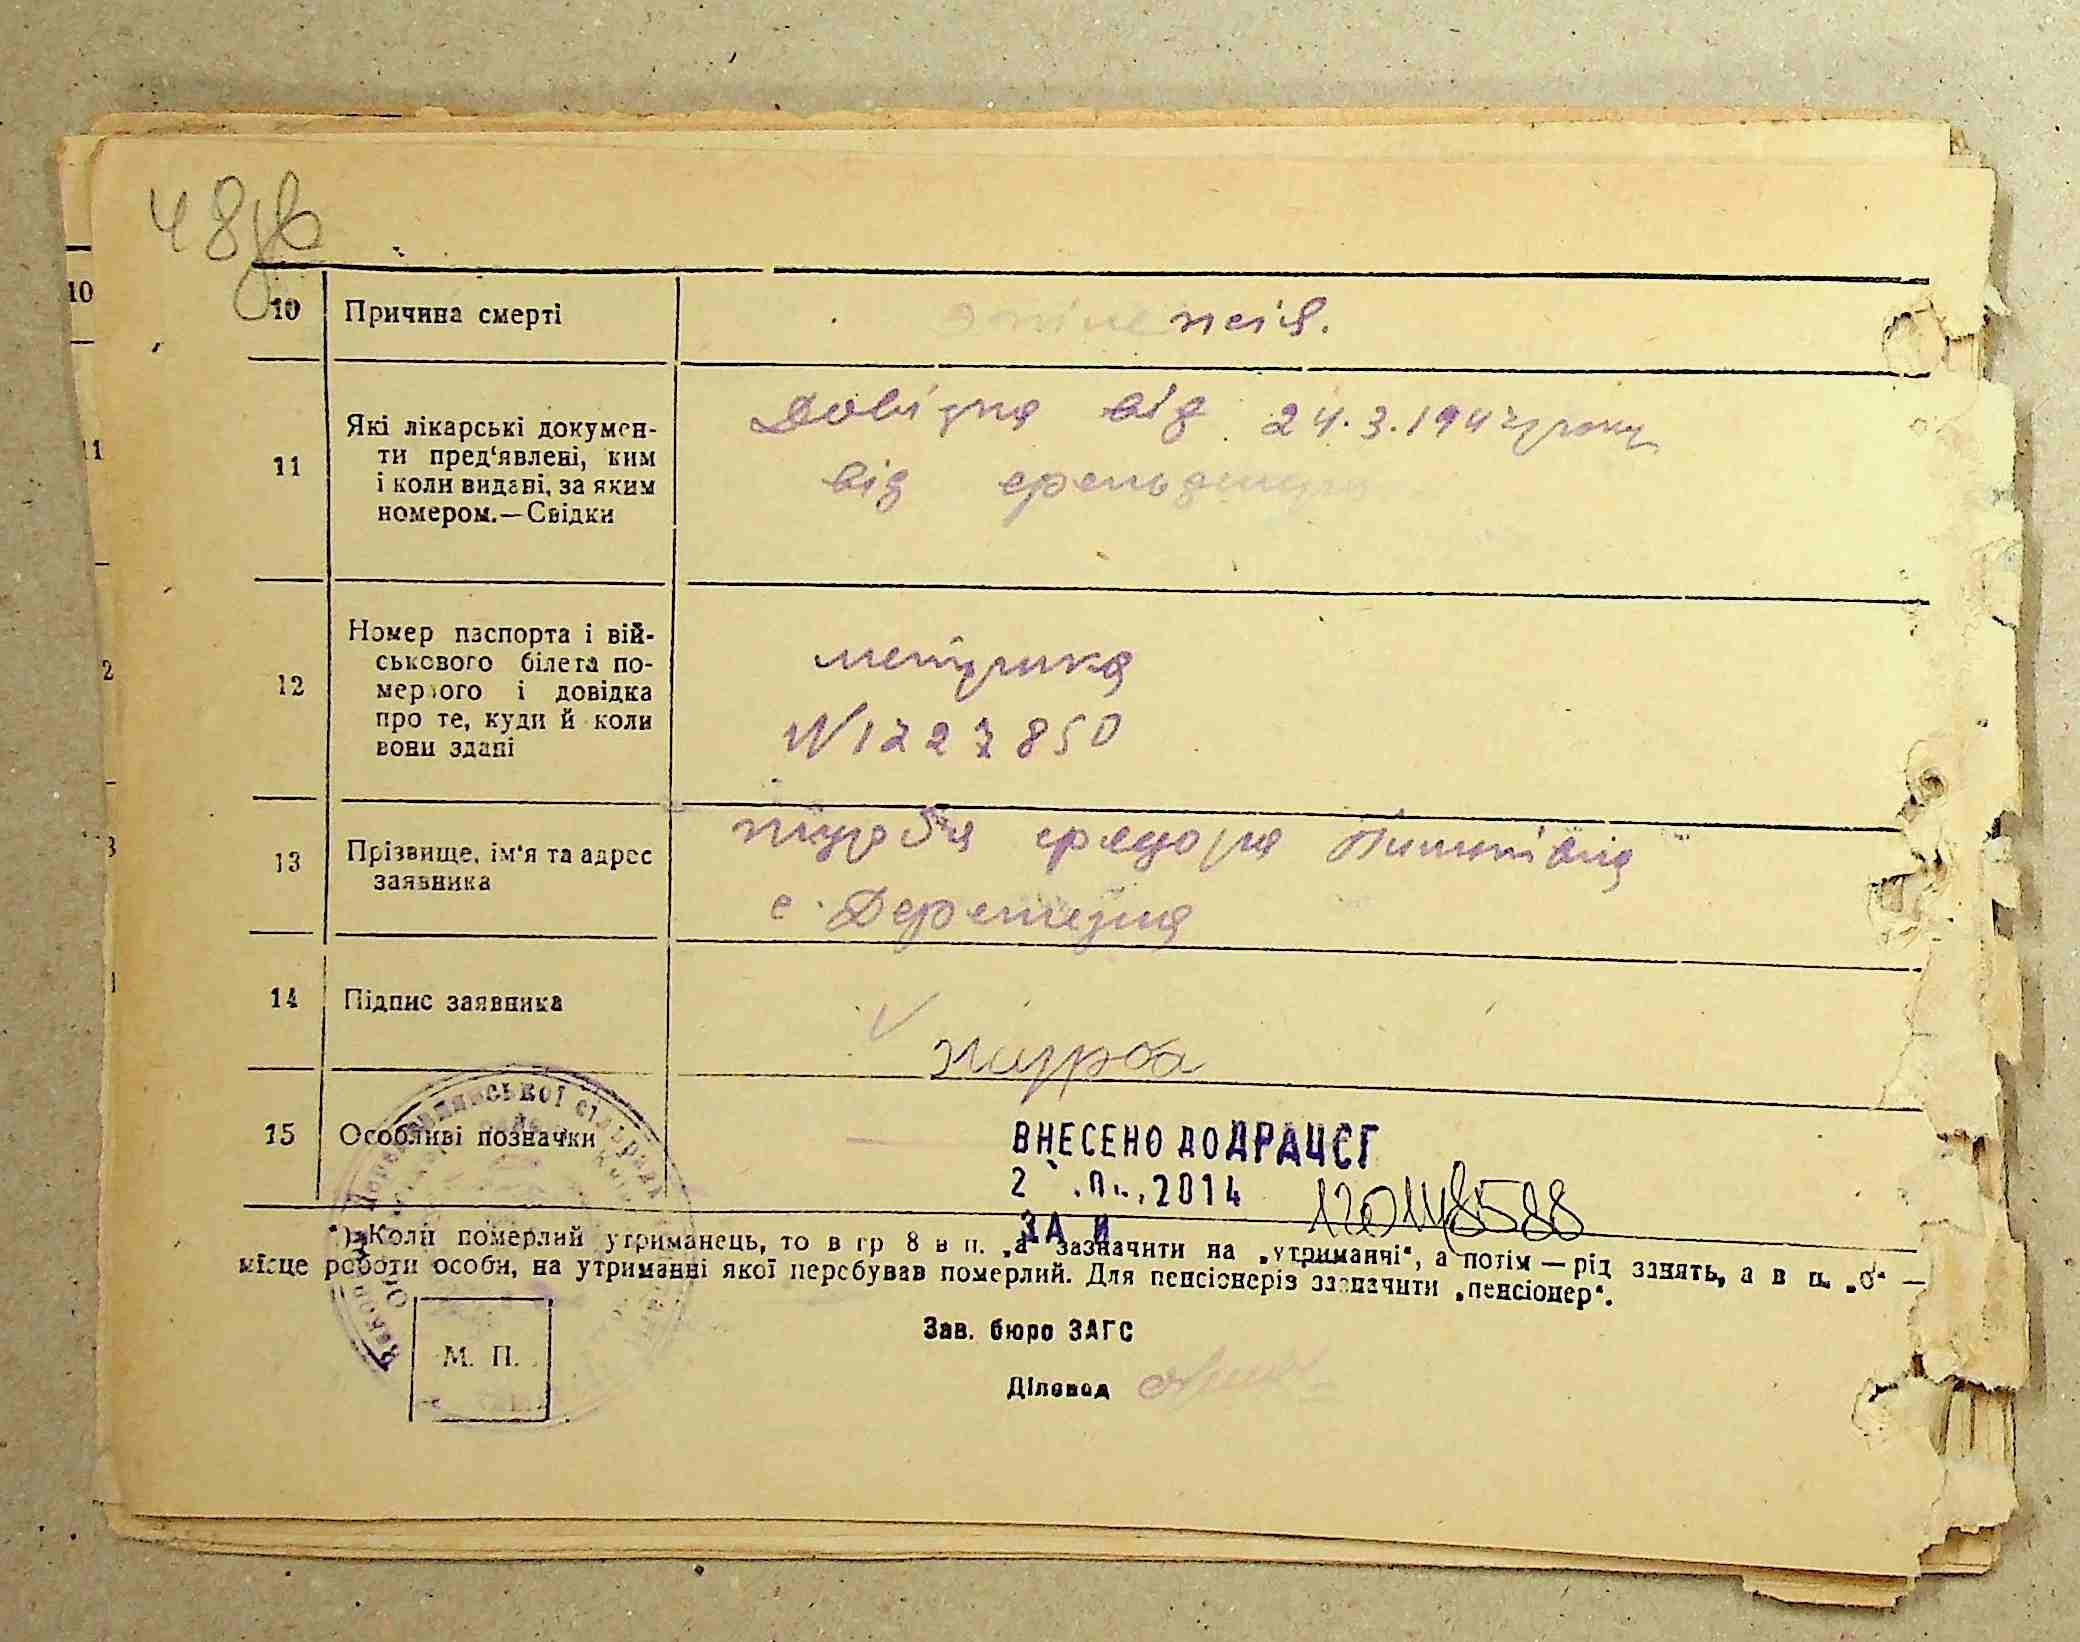 48зв
10 Причина смерті епілепсія.
11 Які лікарські докумен-
ти пред'явлені, ким
і коли видані, за яким
номером.—Свідки
Довідка від 24.3.1947 року
від фельдшера
12 Номер паспорта і вій-
ськового білета по-
мерлого і довідка
про те, куди й коли
вони здані
метрика
N 1227850
13 Прізвище, ім'я та адрес
заявника
Журба Федора
с. Деренезна
14 Підпис заявника
Журба
15 Особливі позначки
ВНЕСЕНО ДО ДРАЦСГ
2014
ЗА №
*) Коли померлий утриманець, то в гр 8 в п. „а" зазначити на „утриманчі", а потім — рід занять, а в п. „б" —
місце роботи особи, на утриманні якої перебував померлий. Для пенсіонерів зазначити „пенсіонер".
Зав. бюро ЗАГС
М. П.
Діловод